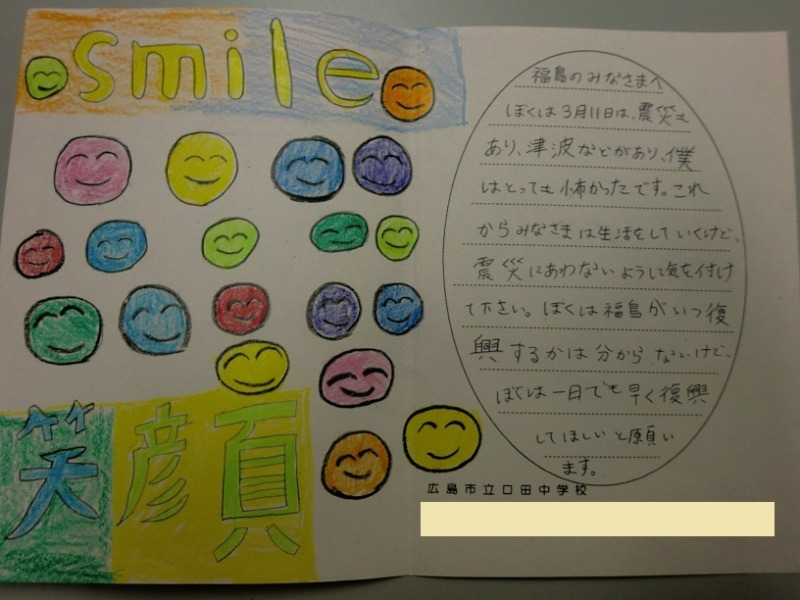 smile
笑顔
福島のみなさまへ
ぼくは3月11日は、震災も
あり、津波などがあり、僕
はとっても怖かったです。これ
からみなさまは生活をしていくけど、
震災にあわないように気を付け
て下さい。ぼくは福島がいつ復
興するかは分からないけど、
ぼくは一日でも早く復興
してほしいと願い
ます。
広島市立口田中学校